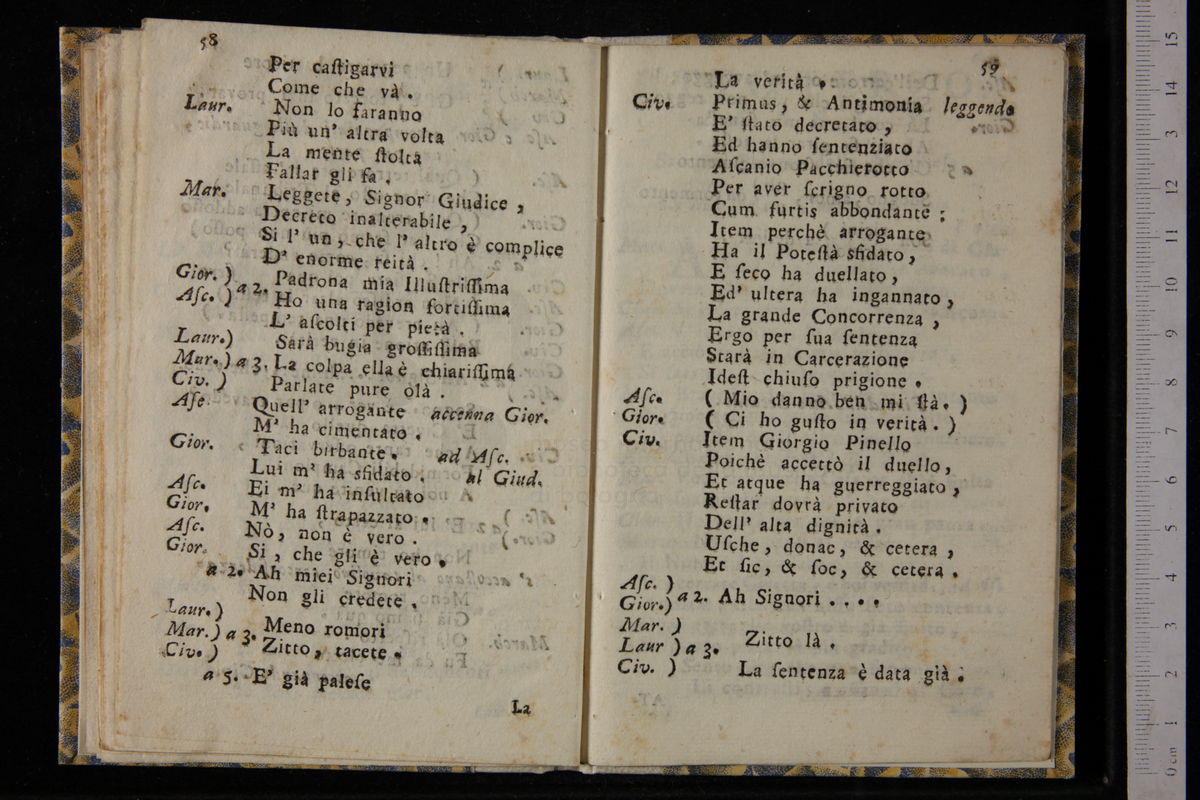 58
Per caſtigarvi
Come che và .
Laur. Non lo faranno
Più un' altra volta
La mente ſtolta
Fallar gli fa .
Mar. Leggete, Signor Giudice ,
Decreto inalterabile ,
Si l' un , che l' altro è complice
D' enorme reità .
Gior. ) Padrona mia Illuſtriſſima
Aſc. ) a 2. Ho una ragion fortiſſima
L' aſcolti per pietà .
Laur.) Sarà bugia groſſiſſima
Mar. ) a 3. La colpa ella è chiariſſima
Civ. ) Parlate pure olà .
Aſc. Quell' arrogante accenna Gior.
M' ha cimentato .
Gior. Taci birbante . ad Aſc.
Lui m' ha sfidato . al Giud.
Aſc. Ei m' ha inſultato
Gior. M' ha ſtrapazzato .
Aſc. Nò, non è vero .
Gior. Si , che gli è vero .
a 2. Ah miei Signori
Non gli credete .
Laur.)
Mar. ) a 3. Meno romori
Civ. ) Zitto, tacete .
a 5. E' già paleſe
La
59
La verità .
Civ. Primus, & Antimonia leggendo
E' ſtato decretato ,
Ed hanno ſentenziato
Aſcanio Pacchierotto
Per aver ſcrigno rotto
Cum furtis abbondante ;
Item perchè arrogante
Ha il Poteſtà sfidato ,
E ſeco ha duellato ,
Ed' ultera ha ingannato ,
La grande Concorrenza ,
Ergo per ſua ſentenza
Starà in Carcerazione
Ideſt chiuſo prigione .
Aſc. ( Mio danno ben mi ſtà. )
Gior. ( Ci ho guſto in verità. )
Civ. Item Giorgio Pinello
Poichè accettò il duello ,
Et atque ha guerreggiato ,
Reſtar dovrà privato
Dell' alta dignità .
Uſche , donac , & cetera ,
Et ſic , & ſoc , & cetera .
Aſc. )
Gior.) a 2. Ah Signori . . . .
Mar. )
Laur ) a 3. Zitto là .
Civ. ) La ſentenza è data già .